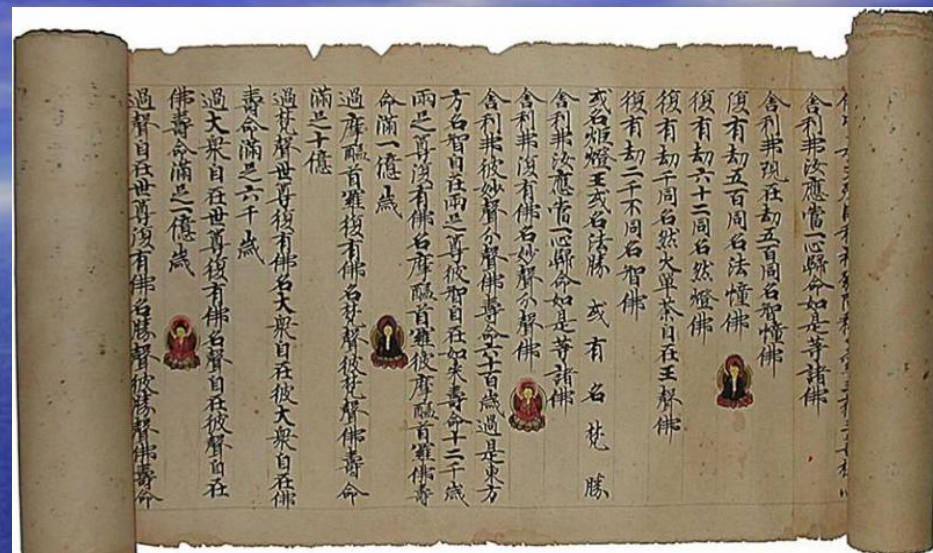 舍利弗汝應當一心歸命如是等諸佛
舍利弗現在劫五百同名智幢佛
復有劫五百同名法幢佛
復有劫六十二同名然燈佛
復有劫千同名然火單荼自在王聲佛
復有劫二千不同名智佛
或名炬燈王或名法勝 或有名梵勝
舍利弗汝應當一心歸命如是等諸佛
舍利弗復有佛名妙聲分聲佛
舍利弗彼妙聲分聲佛壽命六十百歲過是東方
方名智自在兩足之尊彼智自在如来壽命十二千歲
兩足之尊復有佛名摩醯首羅彼摩醯首羅佛壽
命滿一億歲
過摩醯首羅復有佛名梵聲彼梵聲佛壽命
滿足十億
過梵聲世尊復有佛名大衆自在彼大衆自在佛
壽命滿足六千歲
過大衆自在世尊復有佛名聲自在彼聲自在
佛壽命滿足一億歲
過聲自在世尊復有佛名勝聲彼勝聲佛壽命